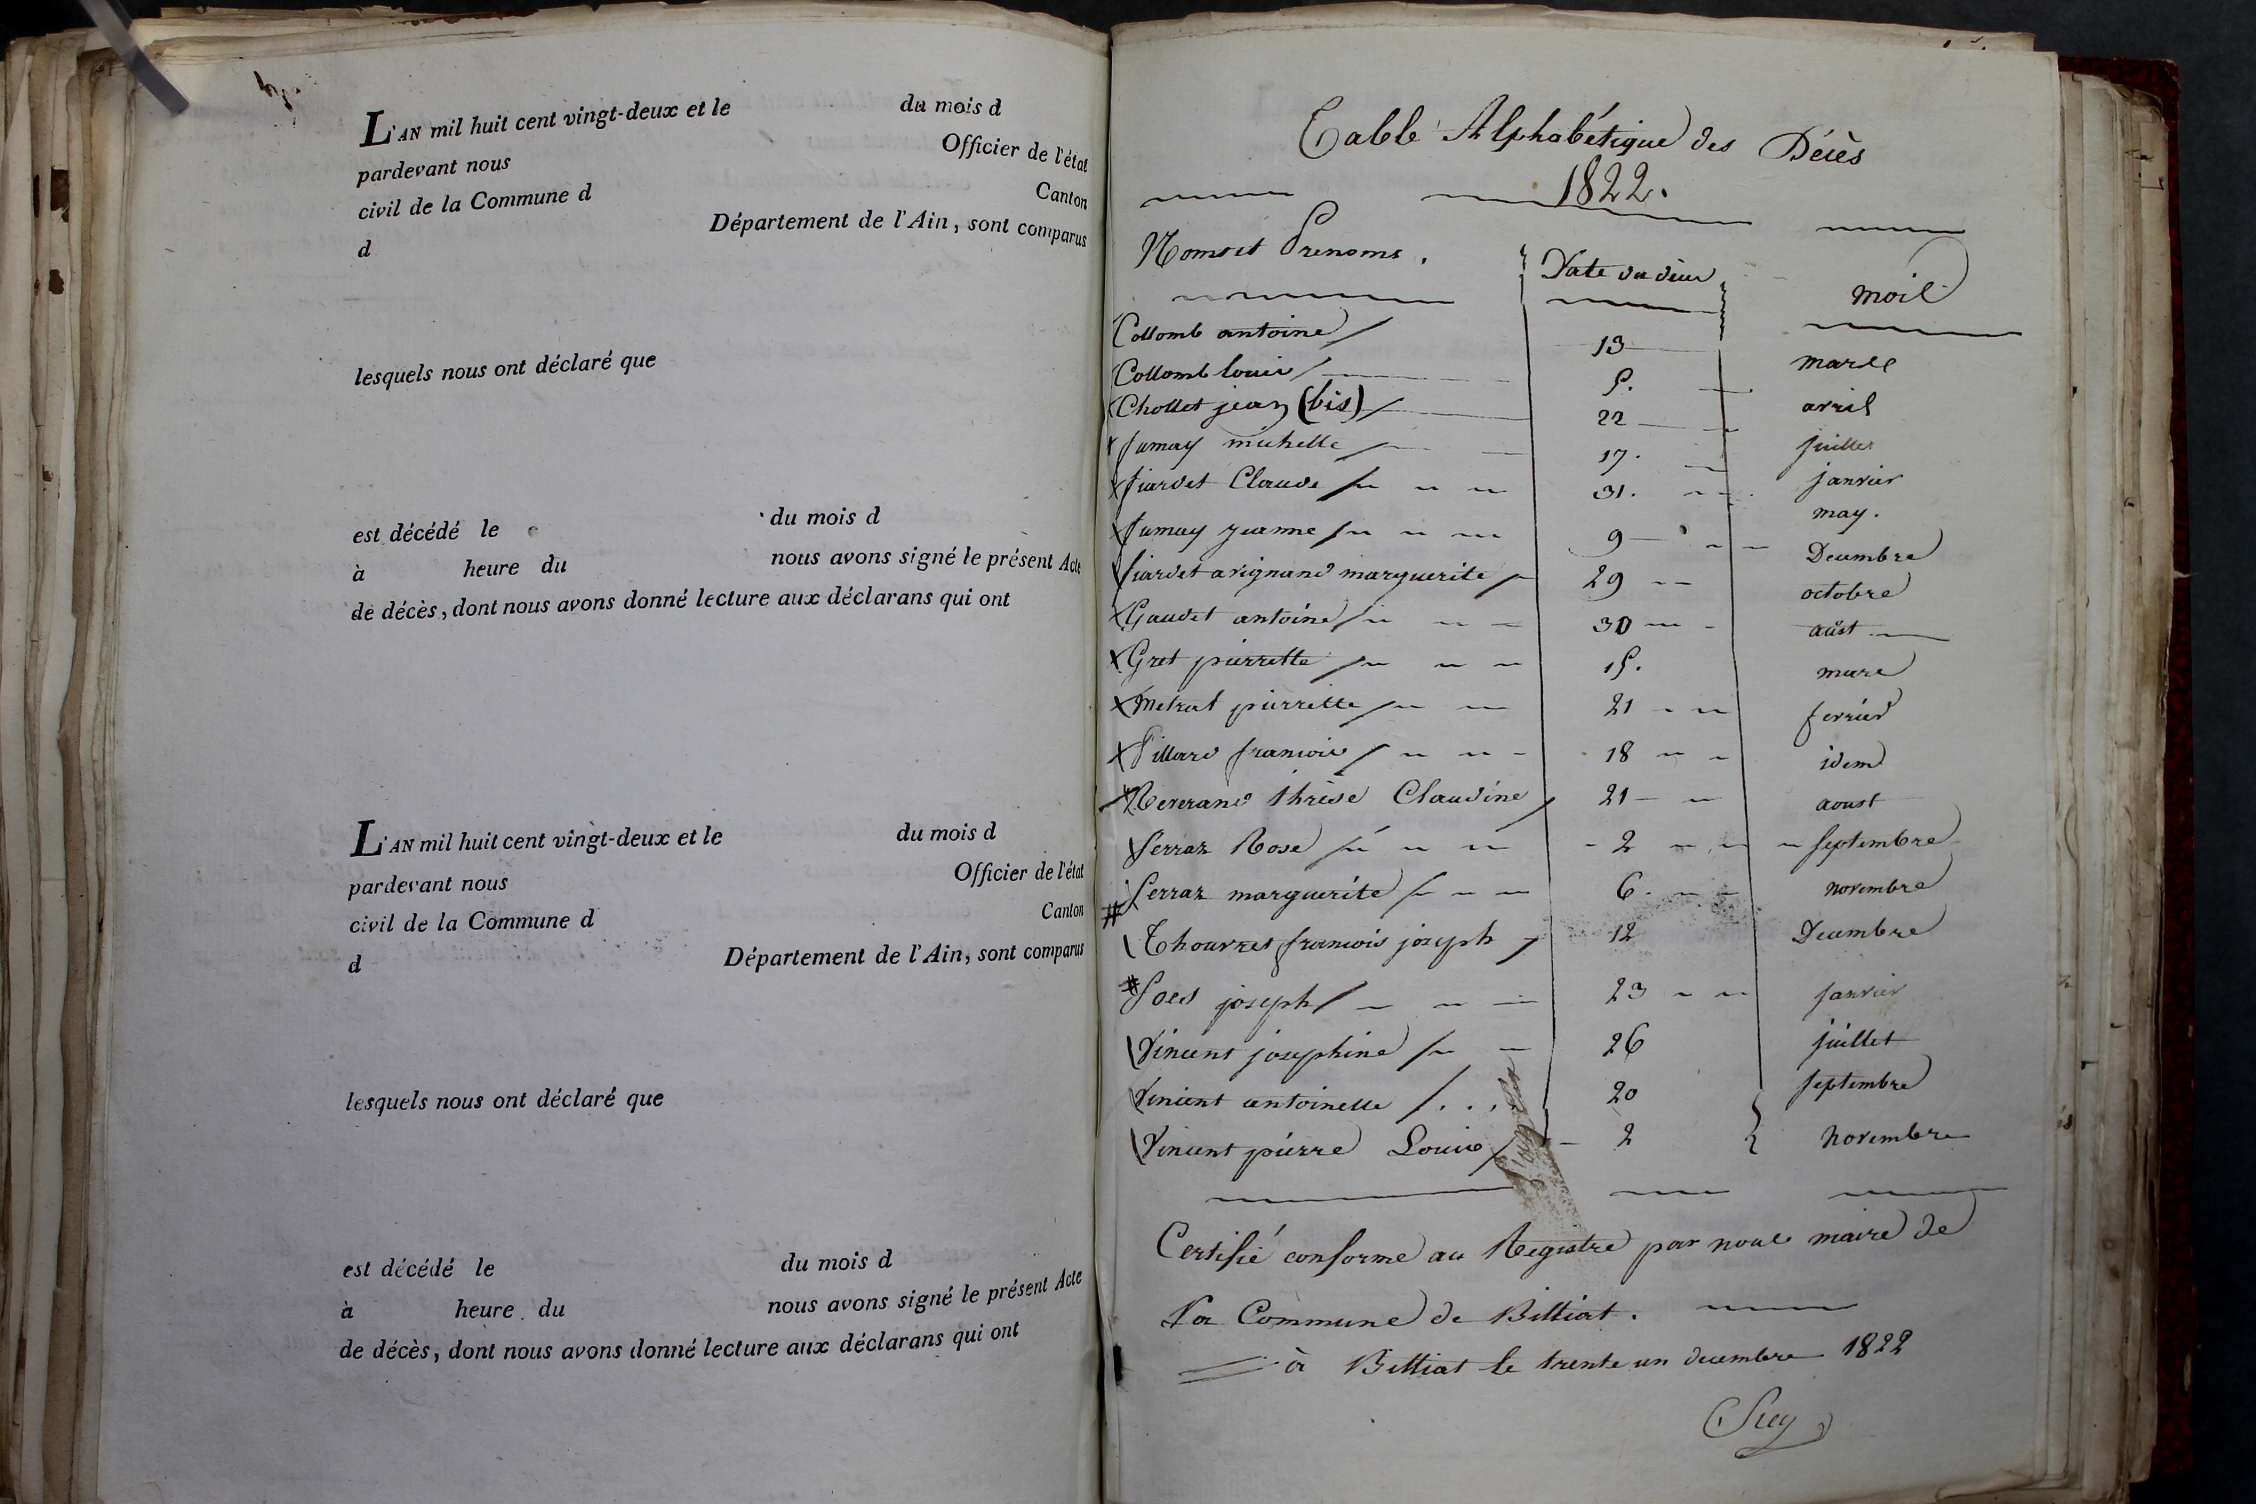 L'AN mil huit cent vingt-deux et le du mois d
pardevant nous Officier de l'état
civil de la Commune d Canton
d Département de l'Ain, sont comparus
lesquels nous ont déclaré que
est décédé le du mois d
à heure du nous avons signé le présent Acte
de décès, dont nous avons donné lecture aux déclarans qui ont
L'AN mil huit cent vingt-deux et le du mois d
pardevant nous Officier de l'état
civil de la Commune d Canton
d Département de l'Ain, sont comparus
lesquels nous ont déclaré que
est décédé le du mois d
à heure du nous avons signé le présent Acte
de décès, dont nous avons donné lecture aux déclarans qui ont
Table Alphabétique des Décès
1822.
Noms et Prenoms. Date du décès mois
Collomb antoine 13 mars
Collomb louis 5. avril
Chollet jean (bis) 22 juillet
michelle 17. janvier
Claude 31. may.
jeanne 9 Decembre
marguerite 29 octobre
Gaudet antoine 30 aûst
Gret pierrette 15. mars
Metral pierrette 21 fevrier
Pillard francois 18 idem
Reverand thrèse Claudine 21 aoust
Serraz Rose 2 septembre
Serraz marguerite 6. novembre
Thouvret francois joseph 12 Decembre
joseph 23 janvier
Vincent josephine 26 juillet
Vincent antoinette 20 septembre
Vincent pierre Louis 2 novembre
Certifié conforme au Registre par nous maire de
la Commune de Billiat.
à Billiat le trente un decembre 1822